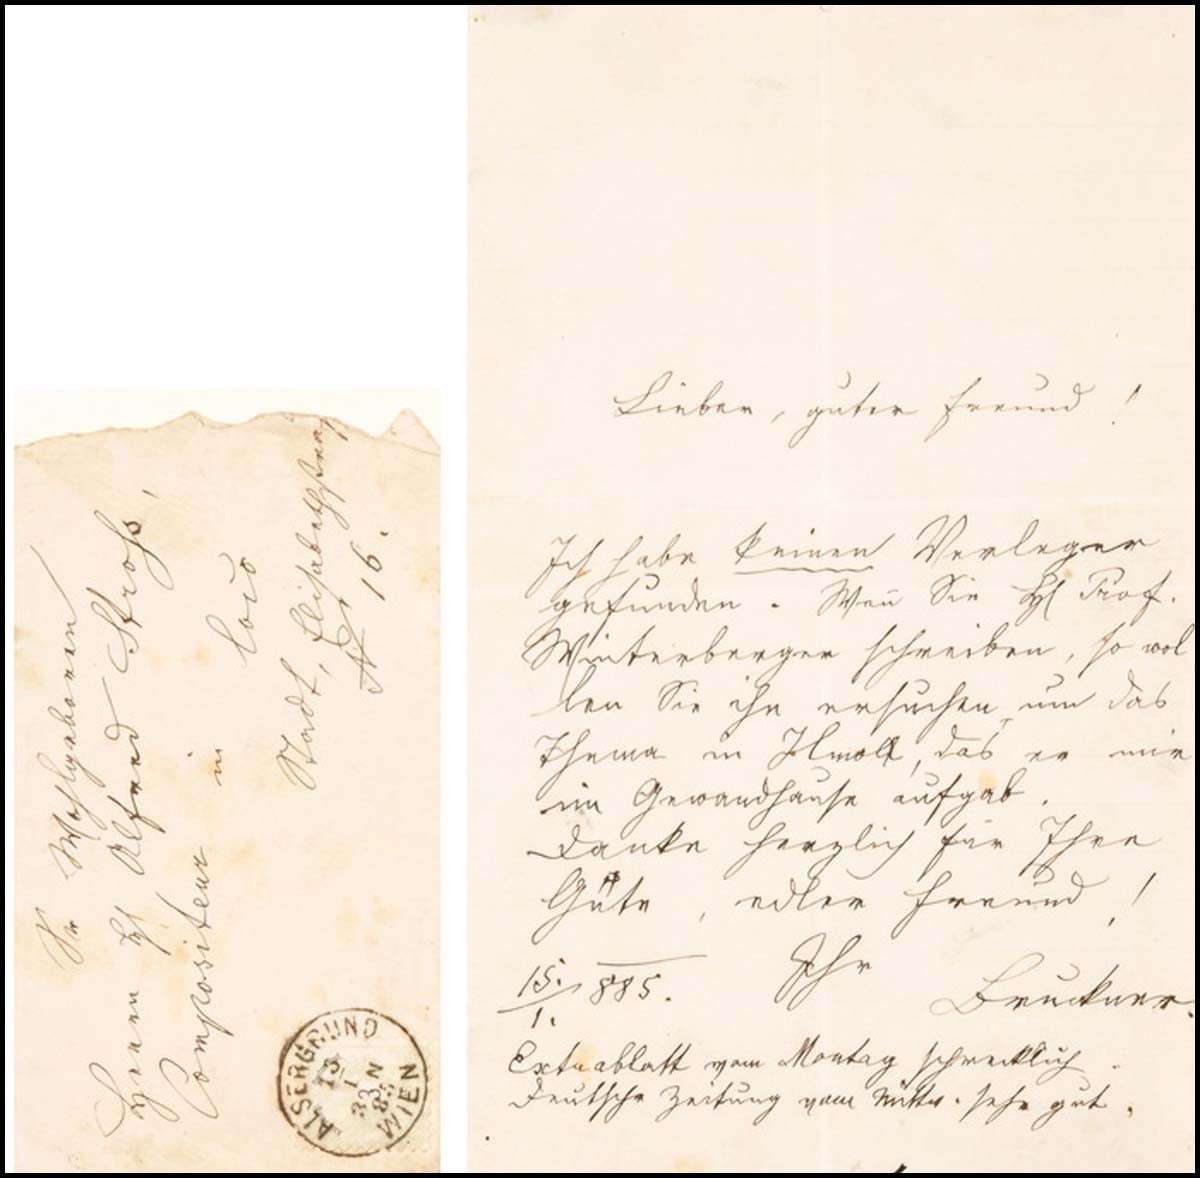 Sr Wohlgeboren
Herrn H Alfred Stross,
Compositeur in
loco
Stadt, Elisabethstraß
Nr 16.
ALSERGRUND
WIEN
Lieber, guter Freund!
Ich habe keinen Verleger
gefunden. Wen̄ Sie H Prof.
Winterberger schreiben, so wol
len Sie ihn ersuchen um das
Thema in Hmoll, das er mir
im Gewandhause aufgab.
Danke herzlich für Ihre
Güte, edler Freund!
Ihr
15./1. 885. Bruckner.
Extrablatt vom Montag schrecklich.
Deutsche Zeitung vom Mittw. sehr gut.